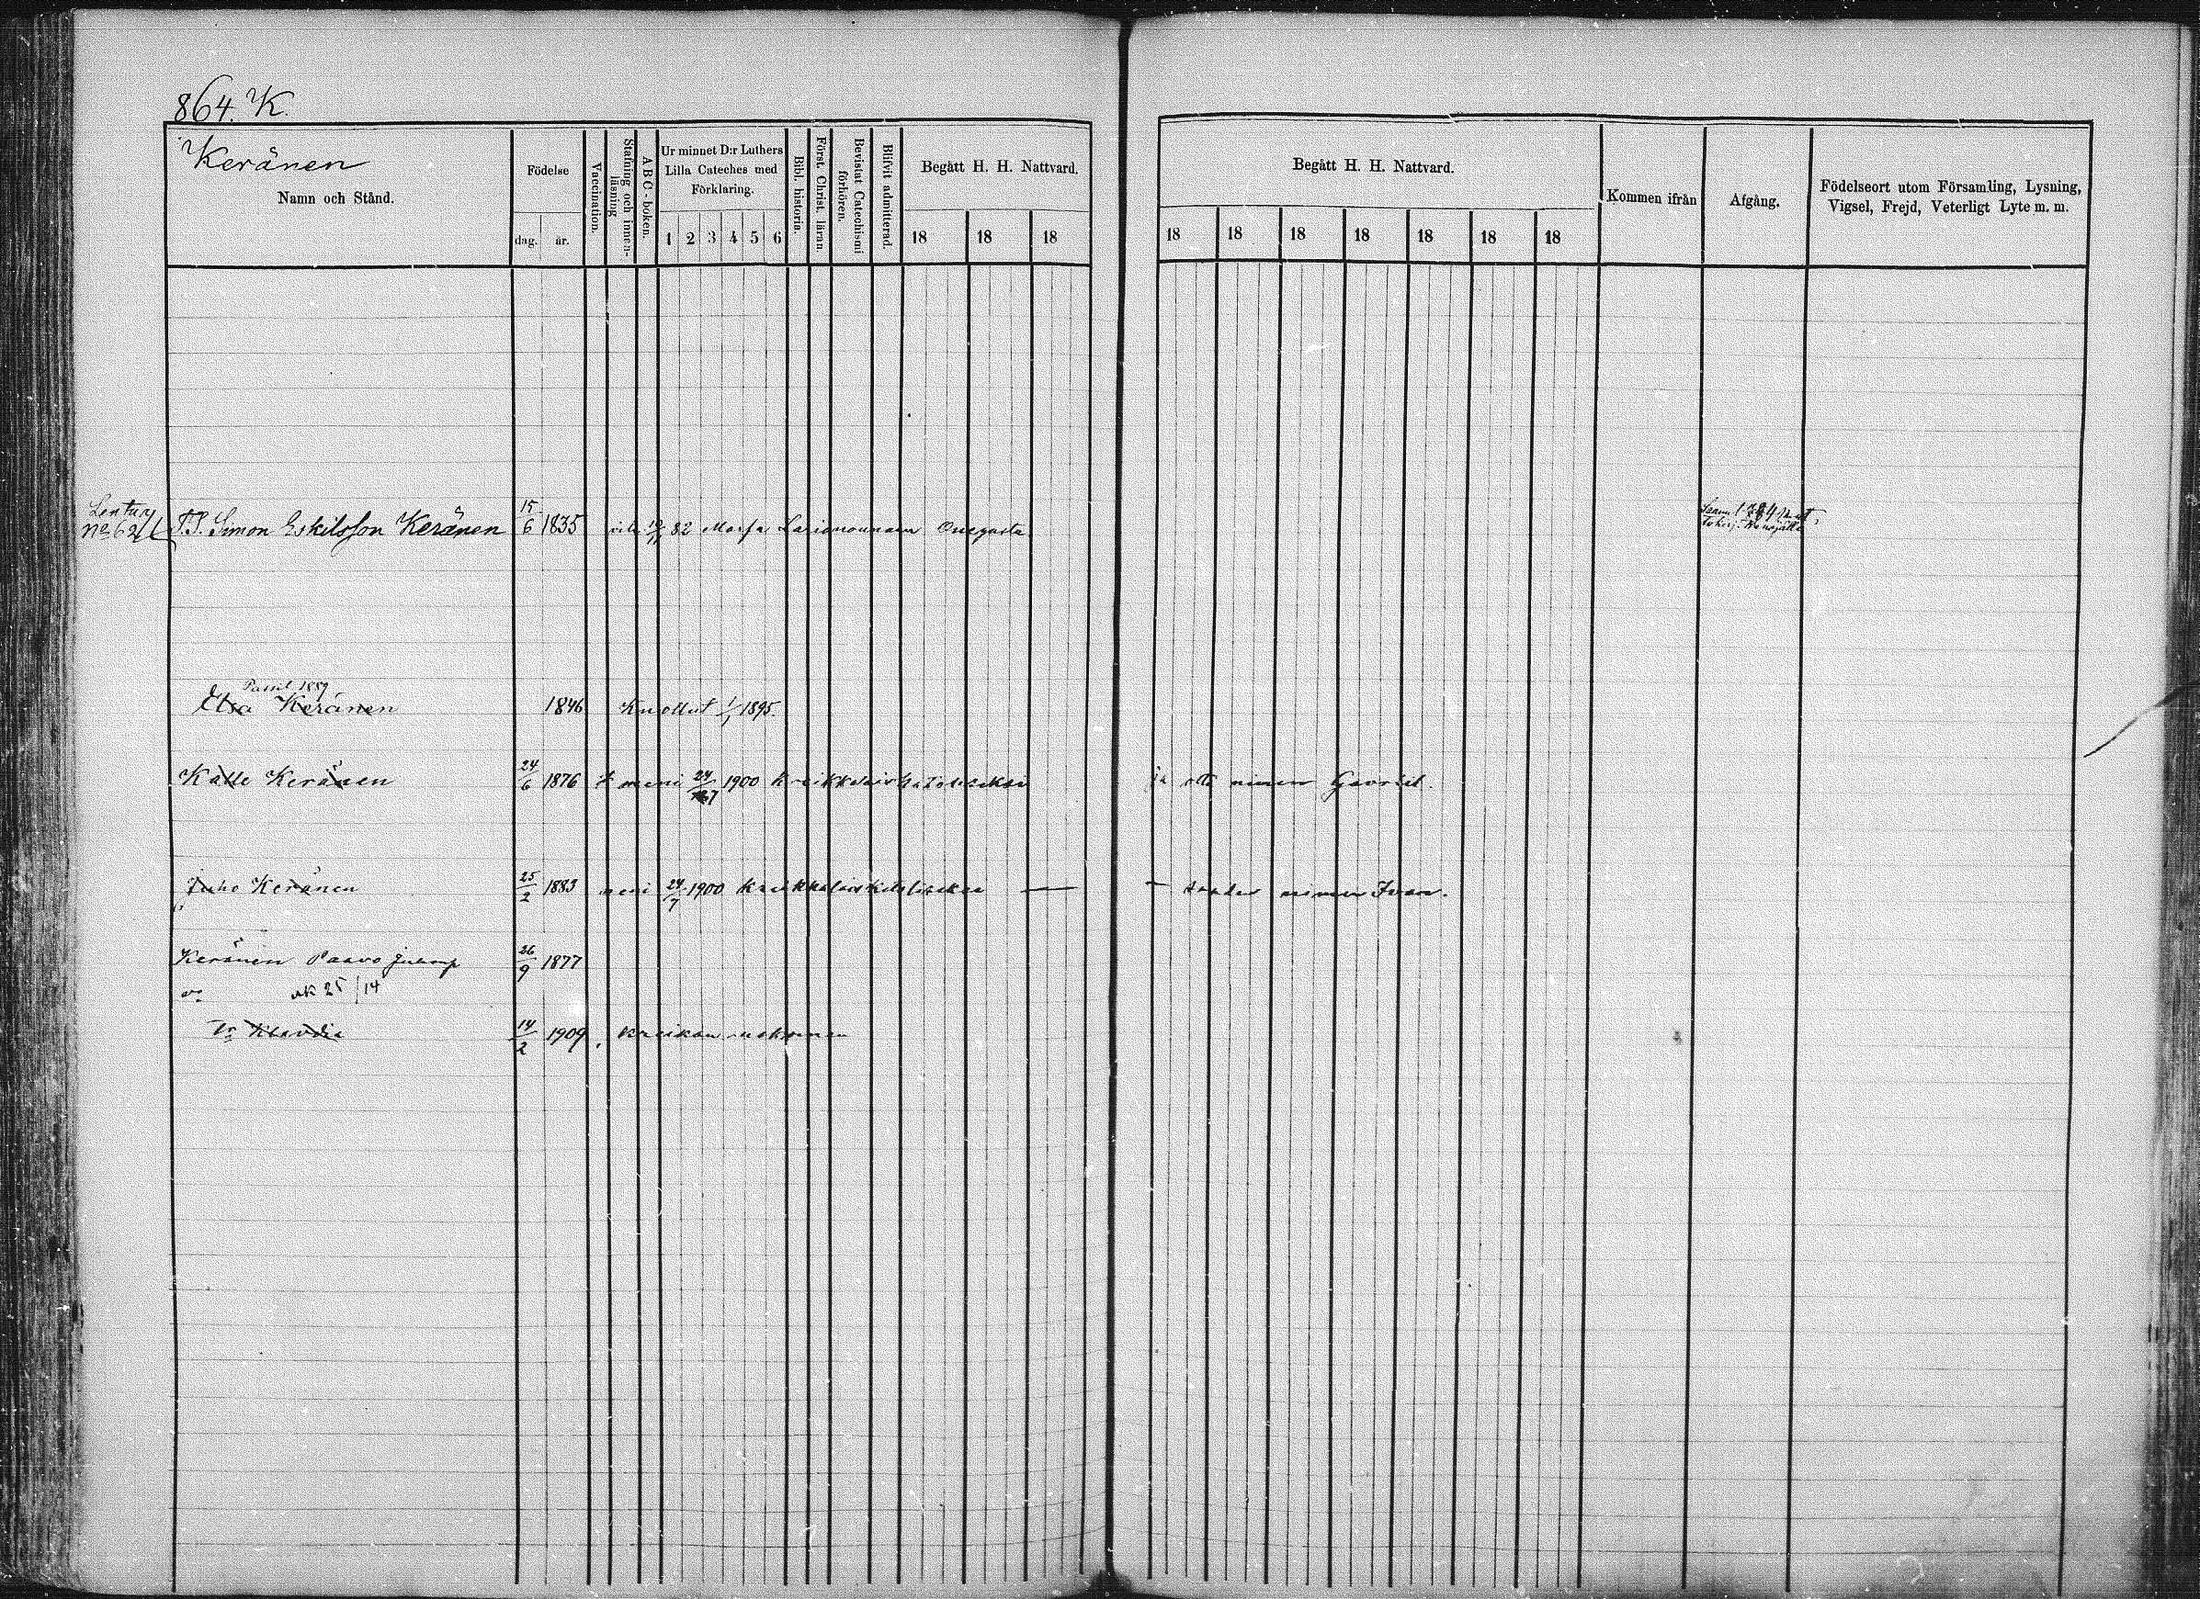 864. K.
Keränen
Namn och Stånd.
Födelse
dag. år.
Vaccination.
Stafning och innen-
läsning
ABC-boken.
Ur minnet D:r Luthers
Lilla Cateches med
Förklaring.
1 2 3 4 5 6
Bibl. historia.
Först. Christ. läran.
Bevistat Catechismi
förhören.
Blifvit admitterad.
Begått H. H. Nattvard.
18 18 18
Begått H. H. Nattvard.
18 18 18 18 18 18 18
Kommen ifrån
Afgång.
Födelseort utom Församling, Lysning,
Vigsel, Frejd, Veterligt Lyte m. m.
Simon Eskilsson Keränen 15/6 1835 82 Marfa
1889
Elsa Keränen 1846 Kuollut 1/1 1895.
Kalle Keränen 24/6 1876 1900 kreikkalaiskatoliseksi ja otti nimen Gavriil.
Juho Keränen 25/2 1883 meni 24/7 1900 kreikkalaiskatoliseksi — — saaden nimen Ivan.
Keränen Paavo 26/9 1877
25/14
Klavdia 14/2 1909 kreikan uskoinen